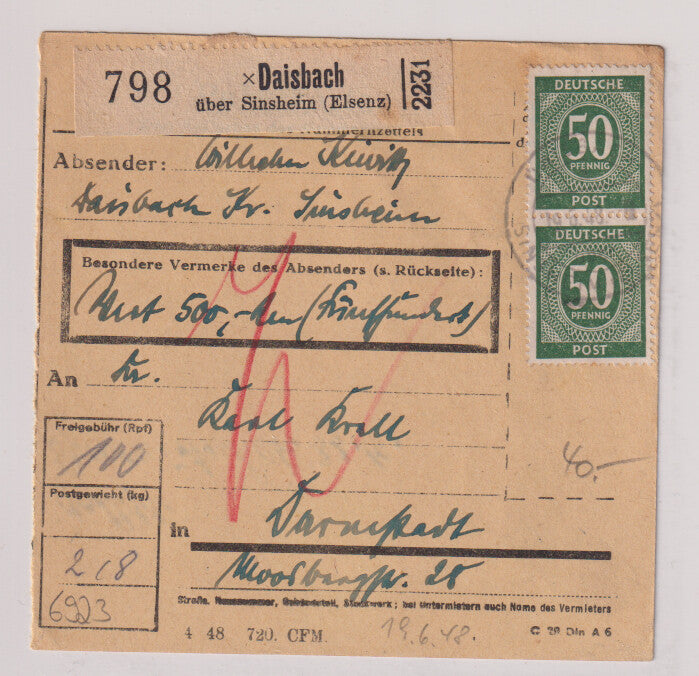 798
×Daisbach
über Sinsheim (Elsenz)
2231
Nummernzettels
DEUTSCHE
50
PFENNIG
POST
DEUTSCHE
50
PFENNIG
POST
Absender: Wilhelm
Daisbach Kr. Sinsheim
Besondere Vermerke des Absenders (s. Rückseite):
Wert 500,- (Fünfhundert)
An
Karl Kroll
Freigebühr (Rpf)
100
40.-
Postgewicht (kg)
in Darmstadt
2,8
Moosbergstr. 28
6923
Straße, Hausnummer, Gebäudeteil, Stockwerk; bei Untermietern auch Name des Vermieters
4 48 720. CFM.
19.6.48.
C 29 Din A 6